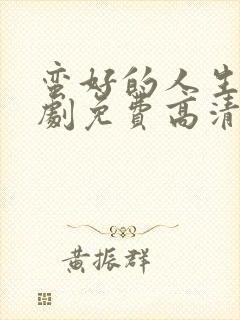 蛮好的人生
劇免费高清
黄振群